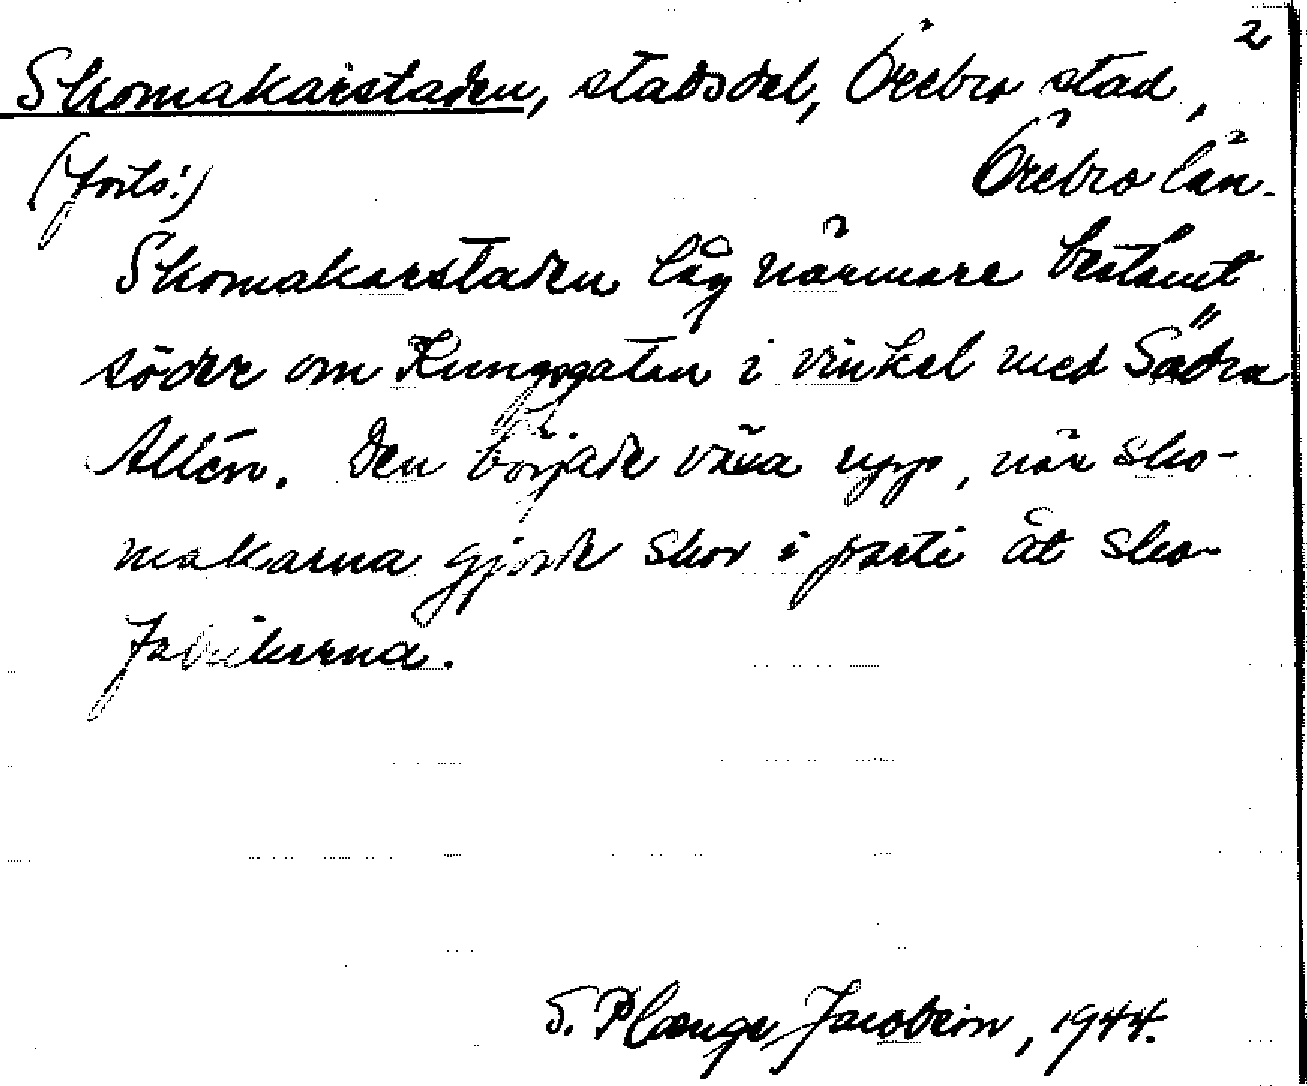 2
Skomakarstaden, stadsdel, Örebro stad,
(forts.) Örebro län.
Skomakarstaden låg närmare bestämt
söder om Kungsgatan i vinkel med Södra
Allén. Den började växa upp, när sko-
makarna gjorde skor i parti åt sko-
fabrikerna.
S. Plænge Jacobson, 1944.